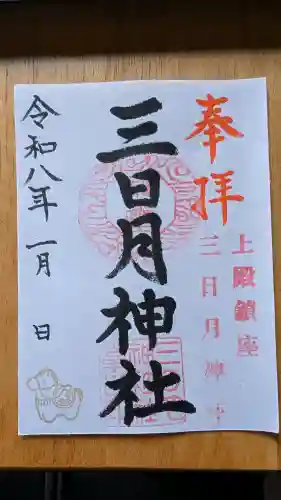 奉拝
上殿鎮座
三日月神社
三日月神社
令和八年 一月 日